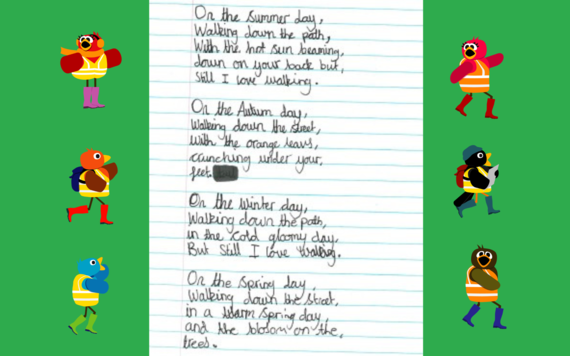 On the Summer day,
Walking down the path,
With the hot sun beaming,
down on your back but,
Still I love walking.
On the Autum day,
Walking down the street,
with the orange leavs,
crunching under your,
feet.
On the winter day,
Walking down the path,
in the cold gloomy day,
But Still I love walking.
On the Spring day,
Walking down the Street,
in a warm Spring day,
and the blosom on the,
trees.